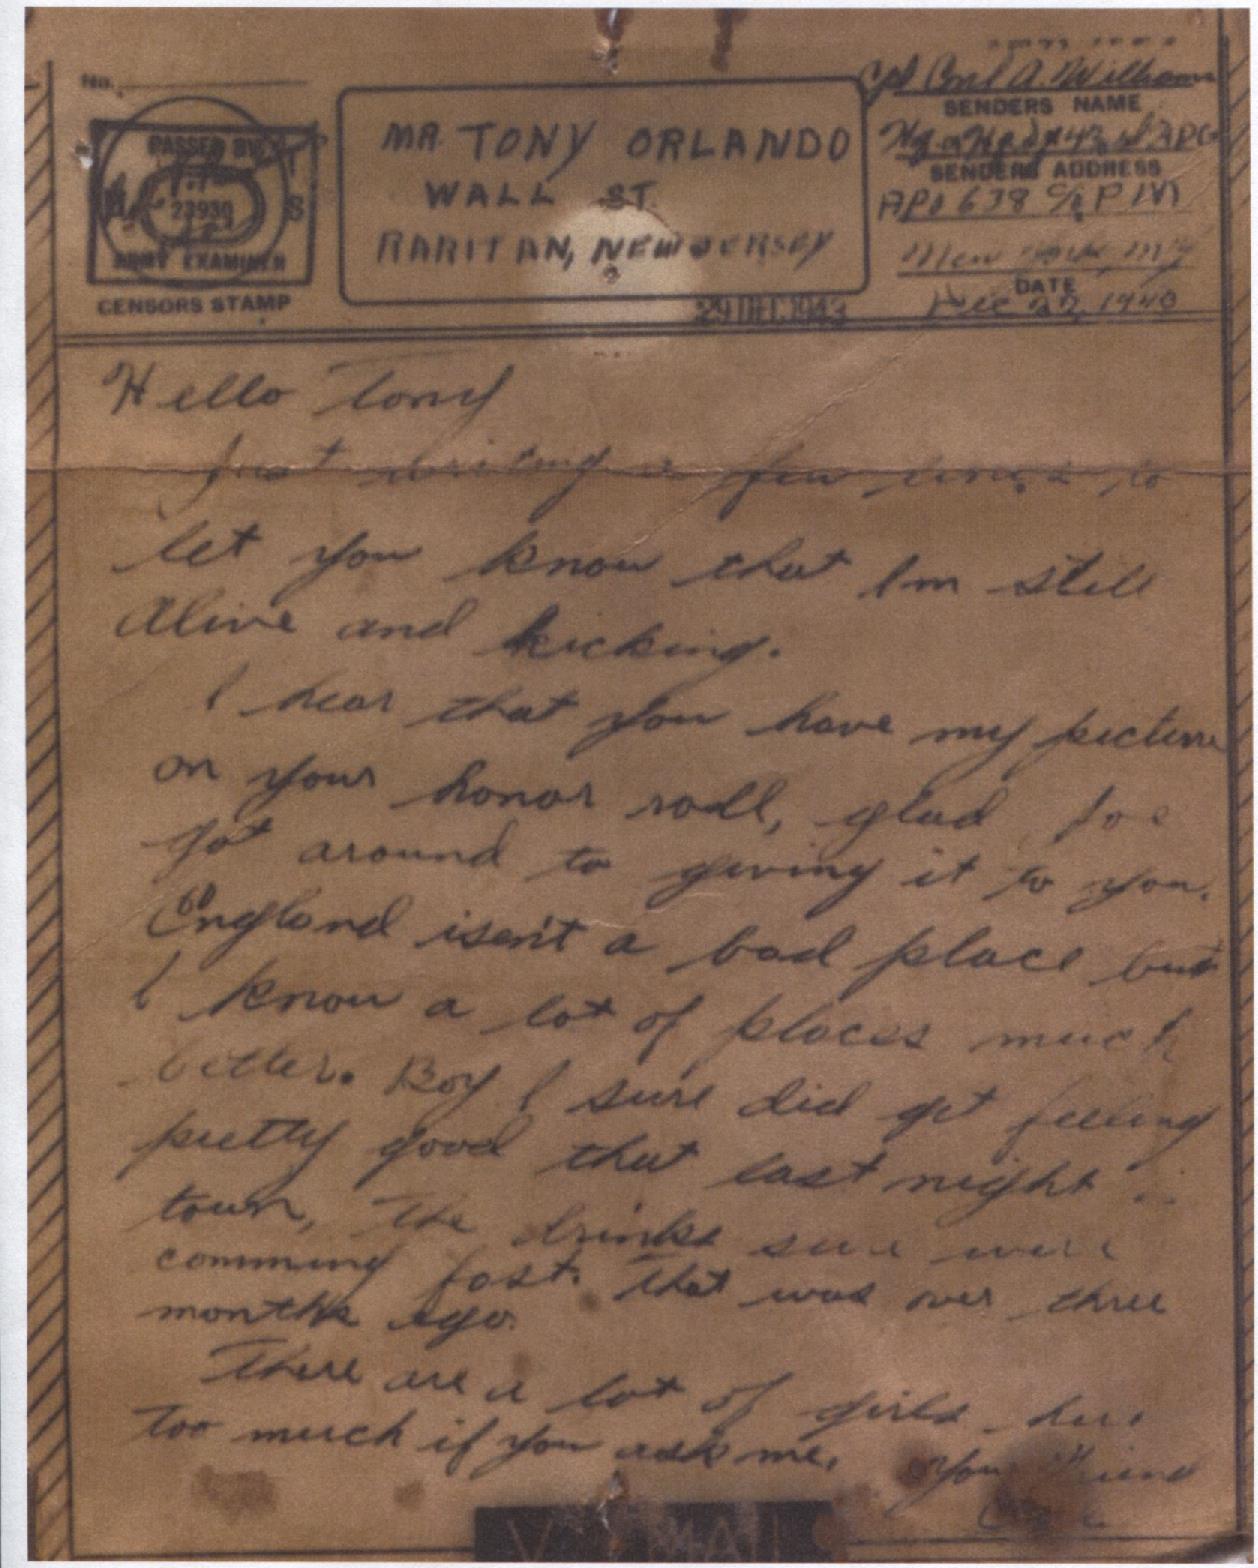 No.
PASSED BY
23930
S
ARMY EXAMINER
CENSORS STAMP
MR. TONY ORLANDO
WALL ST.
RARITAN, NEW JERSEY
29 DEC 1943
Cpl A. William
SENDERS NAME
SENDERS ADDRESS
APO 638 c/o P M
New York, NY
DATE
Dec 27, 1943
Hello Tony
Just writing a few lines to
let you know that I'm still
Alive and kicking.
I hear that you have my picture
on your honor roll, glad Joe
got around to giving it to you.
England isen't a bad place but
I know a lot of places much
better. Boy I sure did get feeling
pretty good that last night in
town, The drinks sure were
comming fast. That was over three
months ago.
There are a lot of girls here
Too much if you ask me.
Your Friend
V-MAIL